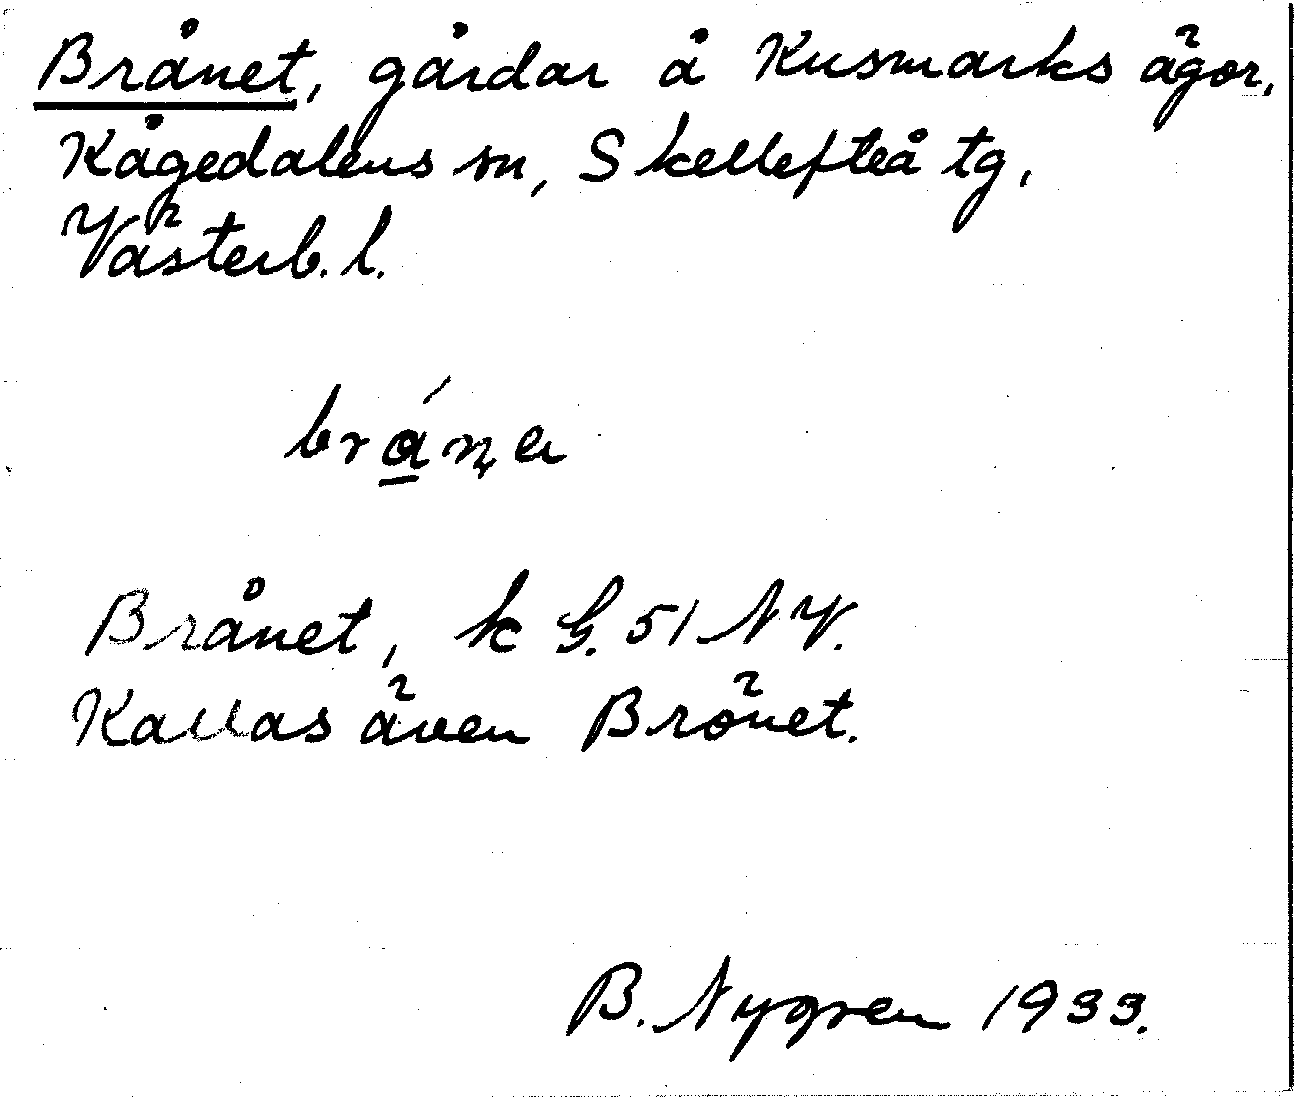 Brånet, gårdar å Kusmarks ägor,
Kågedalens sn, Skellefteå tg,
Västerb. l.
Brånet, k G. 51 NV.
Kallas även Brönet.
B. Nygren 1933.